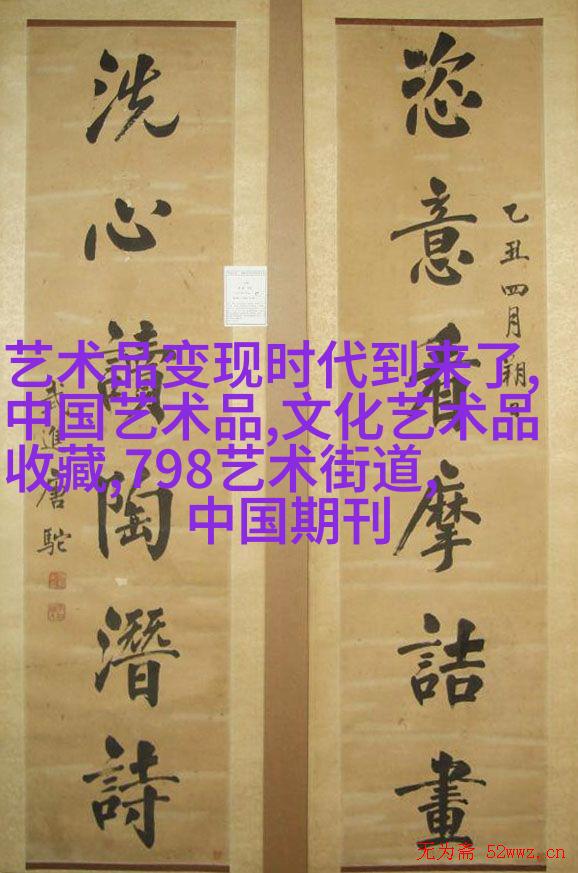 恣意看摩詰畫
乙丑四月朔
洗心讀陶潛詩
武進唐駝
艺术品变现时代到来了,
中国艺术品,文化艺术品
收藏,798艺术街道,
中国期刊
无为斋 52wwz.cn